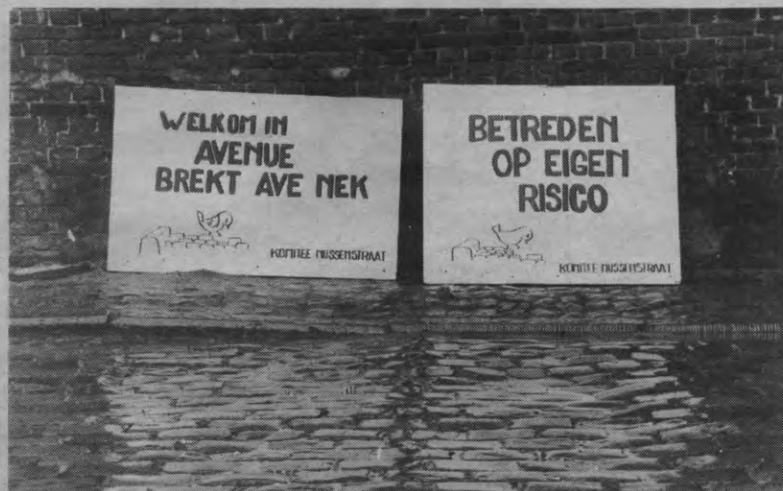 WELKOM IN
AVENUE
BREKT AVE NEK
KOMITEE MUSSENSTRAAT
BETREDEN
OP EIGEN
RISICO
KOMITEE MUSSENSTRAAT